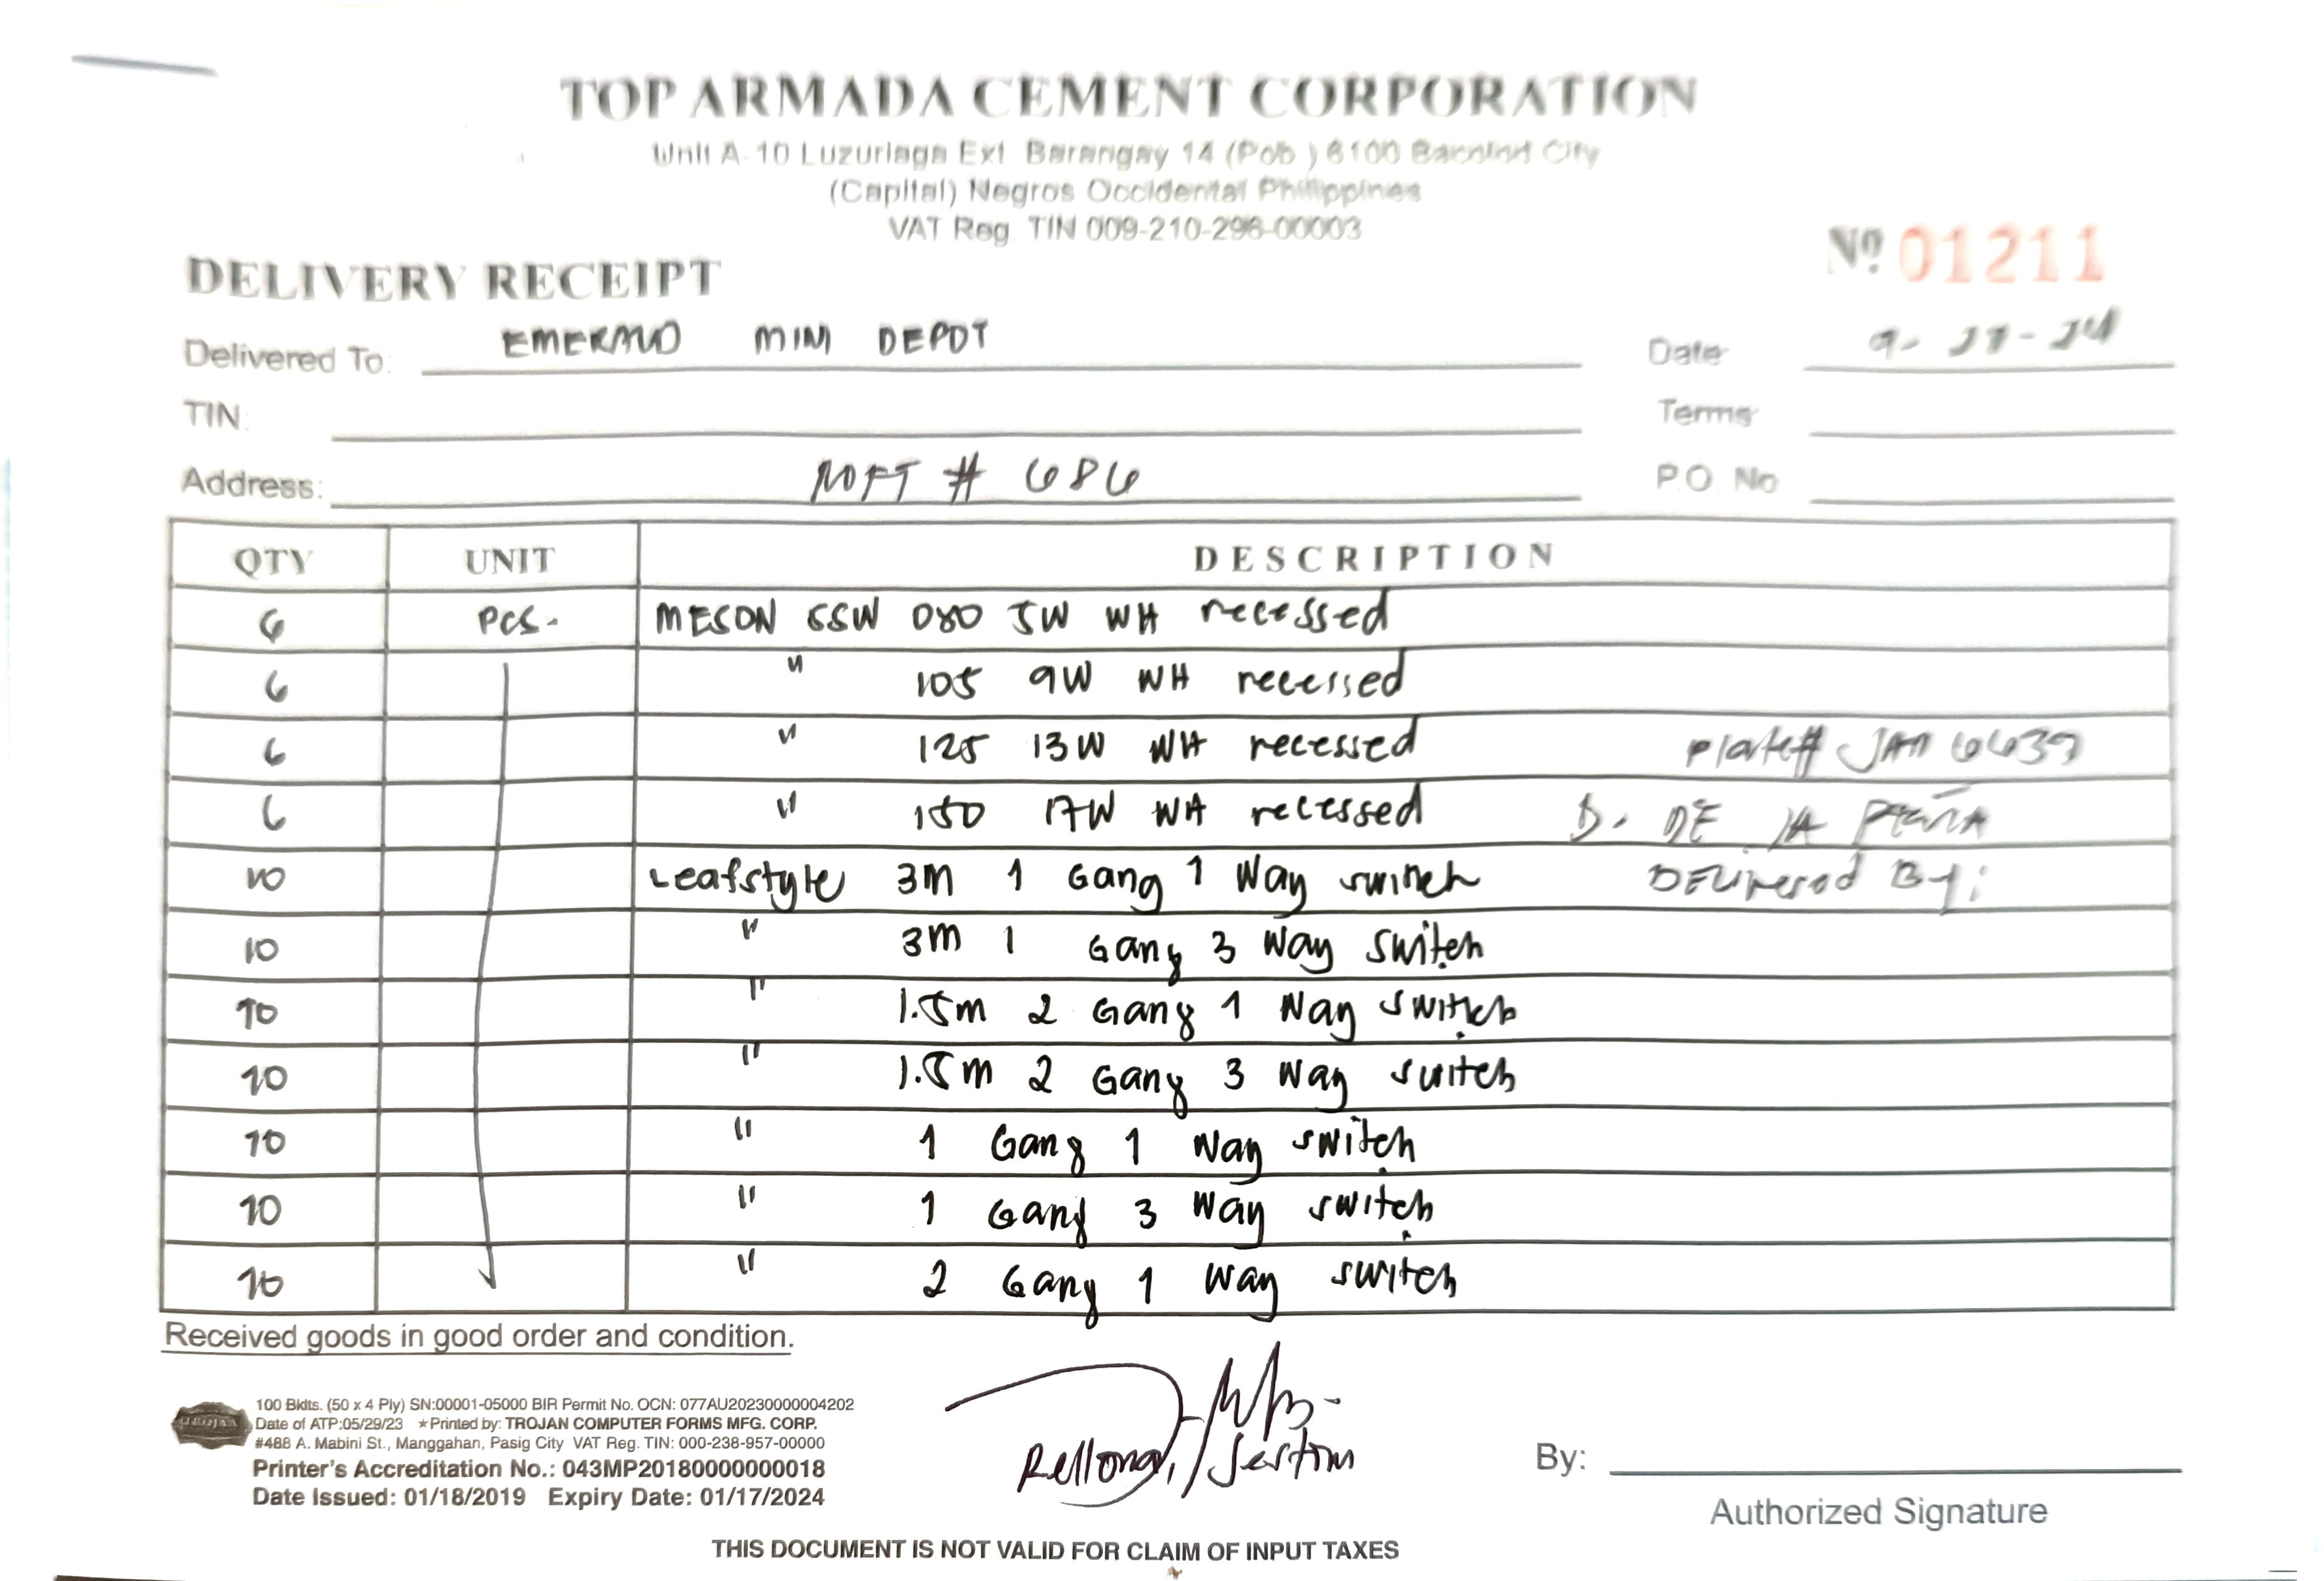 TOP ARMADA CEMENT CORPORATION
Unit A-10 Luzuriaga Ext. Barangay 14 (Pob.) 6100 Bacolod City
(Capital) Negros Occidental Philippines
VAT Reg. TIN 009-210-296-00003
DELIVERY RECEIPT
Nº 01211
Delivered To: EMERALD MINI DEPOT
Date 9-27-24
TIN:
Terms
Address: MOFT # 686
P.O No
QTY UNIT DESCRIPTION
6 PCS. MESON SSW 080 5W WH recessed
6 " 105 9W WH recessed
6 " 125 13W WH recessed Plate# JAN 6639
6 " 150 17W WH recessed D. DE LA PEÑA
10 Leafstyle 3m 1 Gang 1 Way switch Delivered By:
10 " 3m 1 Gang 3 Way switch
10 " 1.5m 2 Gang 1 Way switch
10 " 1.5m 2 Gang 3 Way switch
10 " 1 Gang 1 Way switch
10 " 1 Gang 3 Way switch
10 " 2 Gang 1 Way switch
Received goods in good order and condition.
TROJAN
100 Bklts. (50 x 4 Ply) SN:00001-05000 BIR Permit No. OCN: 077AU20230000004202
Date of ATP:05/29/23 ★Printed by: TROJAN COMPUTER FORMS MFG. CORP.
#488 A. Mabini St., Manggahan, Pasig City VAT Reg. TIN: 000-238-957-00000
Printer's Accreditation No.: 043MP20180000000018
Date Issued: 01/18/2019 Expiry Date: 01/17/2024
By:
Authorized Signature
THIS DOCUMENT IS NOT VALID FOR CLAIM OF INPUT TAXES